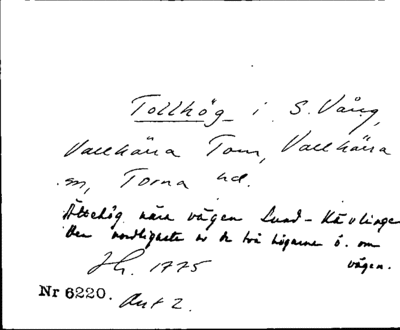 Tollhög i S. Vång,
Vallkärra Tom, Vallkärra
sn, Torna hd.
Ättehög nära vägen Lund - Kävlinge
Den nordligaste av de två högarne ö. om
vägen.
1775
Nr 6220. Akt 2.